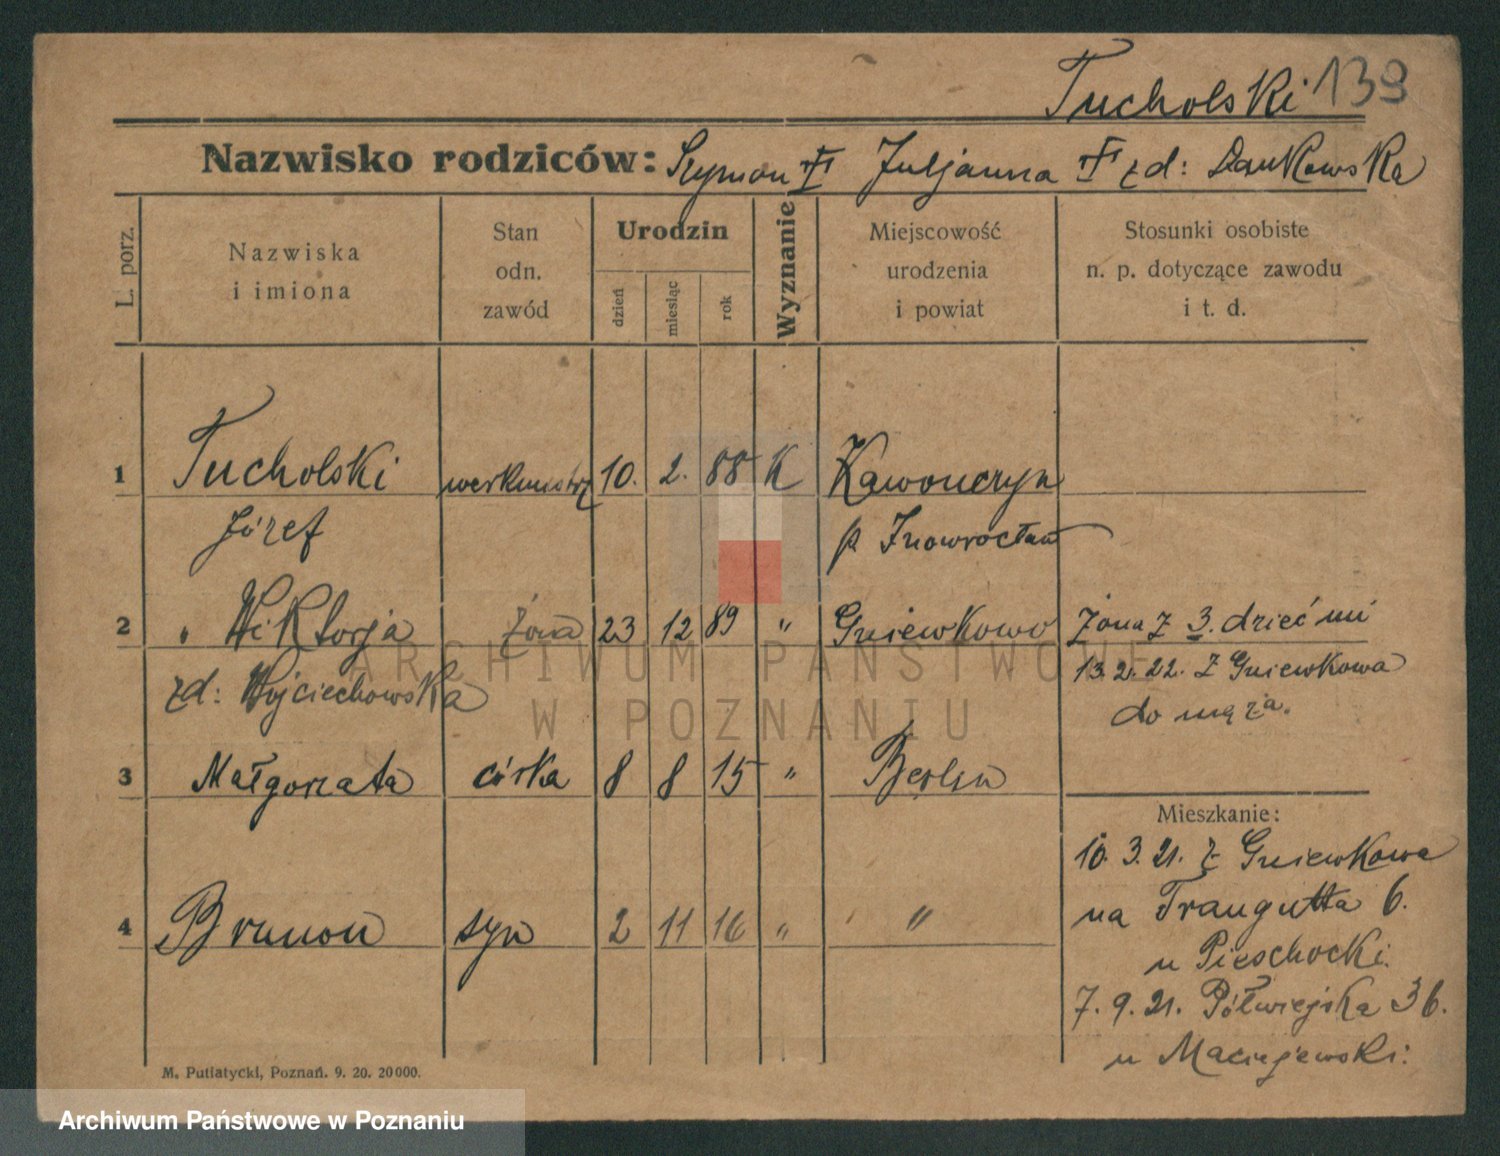 Tucholski 139
Nazwisko rodziców: Szymon † Juljanna † zd: Dankowska
L. porz.
Nazwiska
i imiona
Stan
odn.
zawód
Urodzin
dzień
miesiąc
rok
Wyznanie
Miejscowość
urodzenia
i powiat
Stosunki osobiste
n. p. dotyczące zawodu
i t. d.
1 Tucholski werkmistrz 10. 2. 88 K
Józef p. Inowrocław
2 " Wiktorja żona 23 12 89 " Gniewkowo żona z 3. dziećmi
zd: Wojciechowska 13. 2. 22. z Gniewkowa
do męża.
3 Małgorzata córka 8 8 15 " Berlin
Mieszkanie:
10. 3. 21. z Gniewkowa
4 Brunon syn 2 11 16 " " na Traugutta 6.
u Pieschocki.
7. 9. 21. Półwiejska 36.
u Maciejewski.
M. Putiatycki, Poznań. 9. 20. 20000.
ARCHIWUM PAŃSTWOWE
W POZNANIU
Archiwum Państwowe w Poznaniu